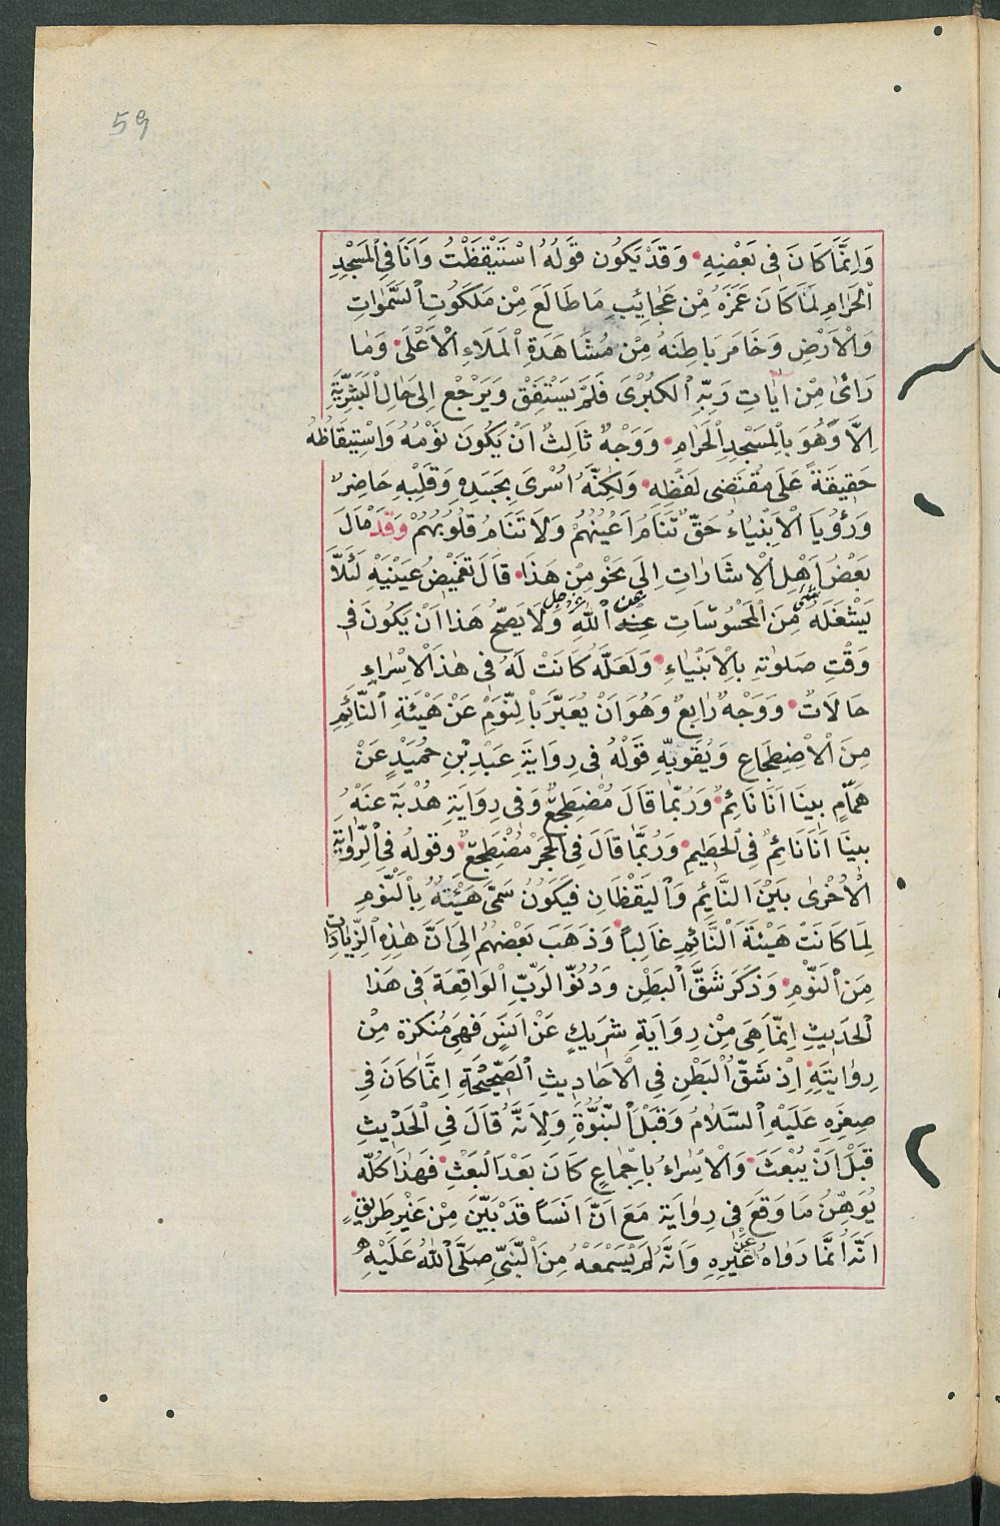 59
وَاِنَّمَا كَانَ فِى بَعْضِهِ وَقَدْ يَكُون قَوْلُهُ اسْتَيْقَظْتُ وَاَنَا فِى الْمَسْجِدِ
الْحَرَامِ لِمَا كَانَ غَمَرَهُ مِنْ عَجَايِبِ مَا طَالَعَ مِنْ مَلَكُوتِ السَّمٰوَاتِ
وَالْاَرْضِ وَخَامَرَ بَاطِنَهُ مِنْ مُشَاهَدَةِ الْمَلَاءِ الْاَعْلَى وَمَا
رَأىٰ مِنْ اٰيَاتِ رَبِّهِ الْكُبْرٰى فَلَمْ يَسْتَفِقْ وَيَرْجِعْ اِلىٰ حَالِ الْبَشَرِيَّةِ
اِلَّا وَهُوَ بِالْمَسْجِدِ الْحَرَامِ وَوَجْهٌ ثَالِثٌ اَنْ يَكُونَ نَوْمُهُ وَاسْتِيقَاظُهُ
حَقِيقَةً عَلَى مُقْتَضٰى لَفْظِهِ وَلٰكِنَّهُ اُسْرِىَ بِجَسَدِهِ وَقَلْبِهِ حَاضِرٌ
وَرُؤْيَا الْاَنْبِيَاءُ حَقٌّ تَنَامُ اَعْيُنُهُمْ وَلَا تَنَامُ قُلُوبُهُمْ وَقَدْ مَالَ
بَعْضُ اَهْلِ الْاِشَارَاتِ اِلَى نَحْوٍ مِنْ هَذَا قَالَ تَغْمِيضُ عَيْنَيْهِ لِئَلَّا
يَشْغَلَهُ شىء مِنَ الْمَحْسُوسَاتِ عِنْدَ عن اللّٰهِ عز وجل وَلَا يَصِحُّ هَذَا اَنْ يَكُونَ فِى
وَقْتِ صَلٰوتِهِ بِالْاَنْبِيَاءِ وَلَعَلَّهُ كَانَتْ لَهُ فِى هٰذَا الْاِسْرَاءِ
حَالَاتٌ وَوَجْهٌ رَابِعٌ وَهُوَ اَنْ يُعَبِّرَ بِالنَّوْمِ عَنْ هَيْئَةِ النَّائِمِ
مِنَ الْاِضْطِجَاعِ وَيُقَوِّيهِ قَوْلُهُ فِى رِوَايَةِ عَبْدِ بْنِ حُمَيْدٍ عَنْ
هَمَّامٍ بَيْنَا اَنَا نَائِمٌ وَرُبَّمَا قَالَ مُضْطَجِعٌ وَفِى رِوَايَةِ هُدْبَةَ عَنْهُ
بَيْنَا اَنَا نَائِمٌ فِى الْحَطِيمِ وَرُبَّمَا قَالَ فِى الْحِجْرِ مُضْطَجِعٌ وَقَولُهُ فِى الرِّوَايَةِ
الْاُخْرٰى بَيْنَ النَّائِمِ وَالْيَقْظَانِ فَيَكُونُ سَمَّى هَيْئَتَهُ بِالنَّوْمِ
لِمَا كَانَتْ هَيْئَةَ النَّائِمِ غَالِبًا وَذَهَبَ بَعْضُهُمْ اِلَى اَنَّ هٰذِهِ الزِّيَادَاتِ
مِنَ النَّوْمِ وَذَكَرَ شَقَّ الْبَطْنِ وَدُنُوَّ الرَّبِّ الْوَاقِعَةَ فِى هَذَا
الْحَدِيثِ اِنَّمَا هِىَ مِنْ رِوَايَةِ شَرِيكٍ عَنْ اَنَسٍ فَهِىَ مُنْكَرَةٌ مِنْ
رِوَايَتِهِ اِذْ شَقُّ الْبَطْنِ فِى الْاَحَادِيثِ الصَّحِيحَةِ اِنَّمَا كَانَ فِى
صِغَرِهِ عَلَيْهِ السَّلَامُ وَقَبْلَ النُّبُوَّةِ وَلِاَنَّهُ قَالَ فِى الْحَدِيثِ
قَبْلَ اَنْ يُبْعَثَ وَالْاِسْرَاءُ بِاِجْمَاعٍ كَانَ بَعْدَ الْبَعْثِ فَهٰذَا كُلُّهُ
يُوَهِّنُ مَا وَقَعَ فِى رِوَايَة مَعَ اَنَّ اَنَسًا قَدْ بَيَّنَ مِنْ غَيْرِ طَرِيقٍ
اَنَّهُ اِنَّمَا رَوَاهُ عَنْ غَيْرِهِ وَاَنَّهُ لَمْ يَسْمَعْهُ مِنَ النَّبِىِّ صَلَّى اللّٰهُ عَلَيْهِ